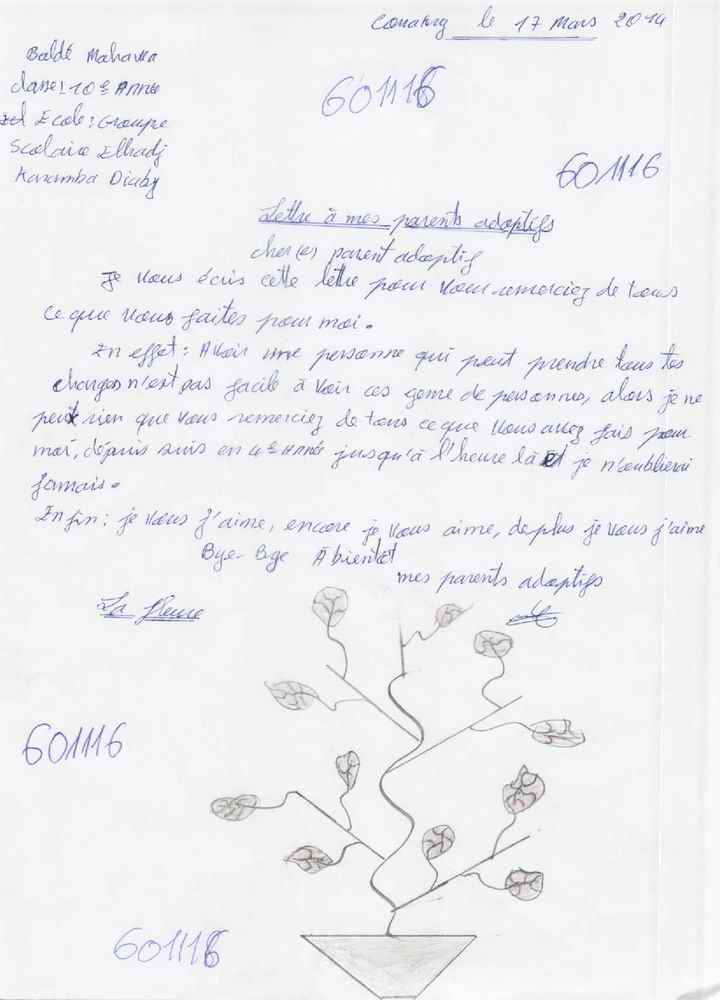 Conakry le 17 Mars 2014
Baldé Mahawa
classe: 10e Année
Ecole: Groupe
Scolaire Elhadj
Karamba Diaby
601116
601116
Lettre à mes parents adoptifs
cher(es parent adoptif
Je vous écris cette lettre pour vous remerciez de tous
ce que vous faites pour moi.
En effet: Avoir une personne qui peut prendre tous tes
charges n'est pas facile à voir ces geme de personnes, alors je ne
peut rien que vous remerciez de tous ce que vous avez fais pour
moi, dépuis suis en 4e Année jusqu'à l'heure là et je n'oublierai
jamais.
Enfin: je vous j'aime, encore je vous aime, de plus je vous j'aime
Bye-Bye A bientôt
mes parents adoptifs
La fleure
601116
601116